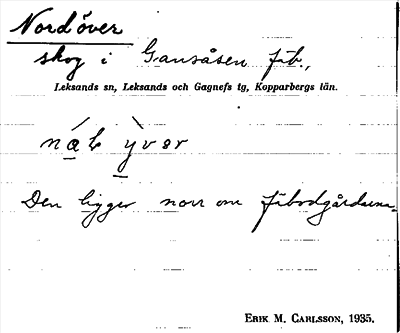 Nordöver
skog i Gansåsen fäb.,
Leksands sn, Leksands och Gagnefs tg, Kopparbergs län.
Den ligger norr om fäbodgårdarna.
ERIK M. CARLSSON, 1935.